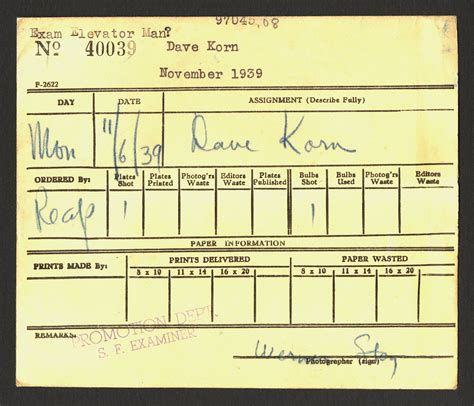 97045,68
Exam Elevator Man?
No 40039
Dave Korn
November 1939
F-2622
DAY DATE ASSIGNMENT (Describe Fully)
Mon 11/6/39 Dave Korn
ORDERED By: Plates Shot Plates Printed Photog'rs Waste Editors Waste Plates Published Bulbs Shot Bulbs Used Photog'rs Waste Editors Waste
1 1
PAPER INFORMATION
PRINTS MADE By: PRINTS DELIVERED PAPER WASTED
8 x 10 11 x 14 16 x 20 8 x 10 11 x 14 16 x 20
PROMOTION DEPT.
S. F. EXAMINER
REMARKS:
Photographer (sign)